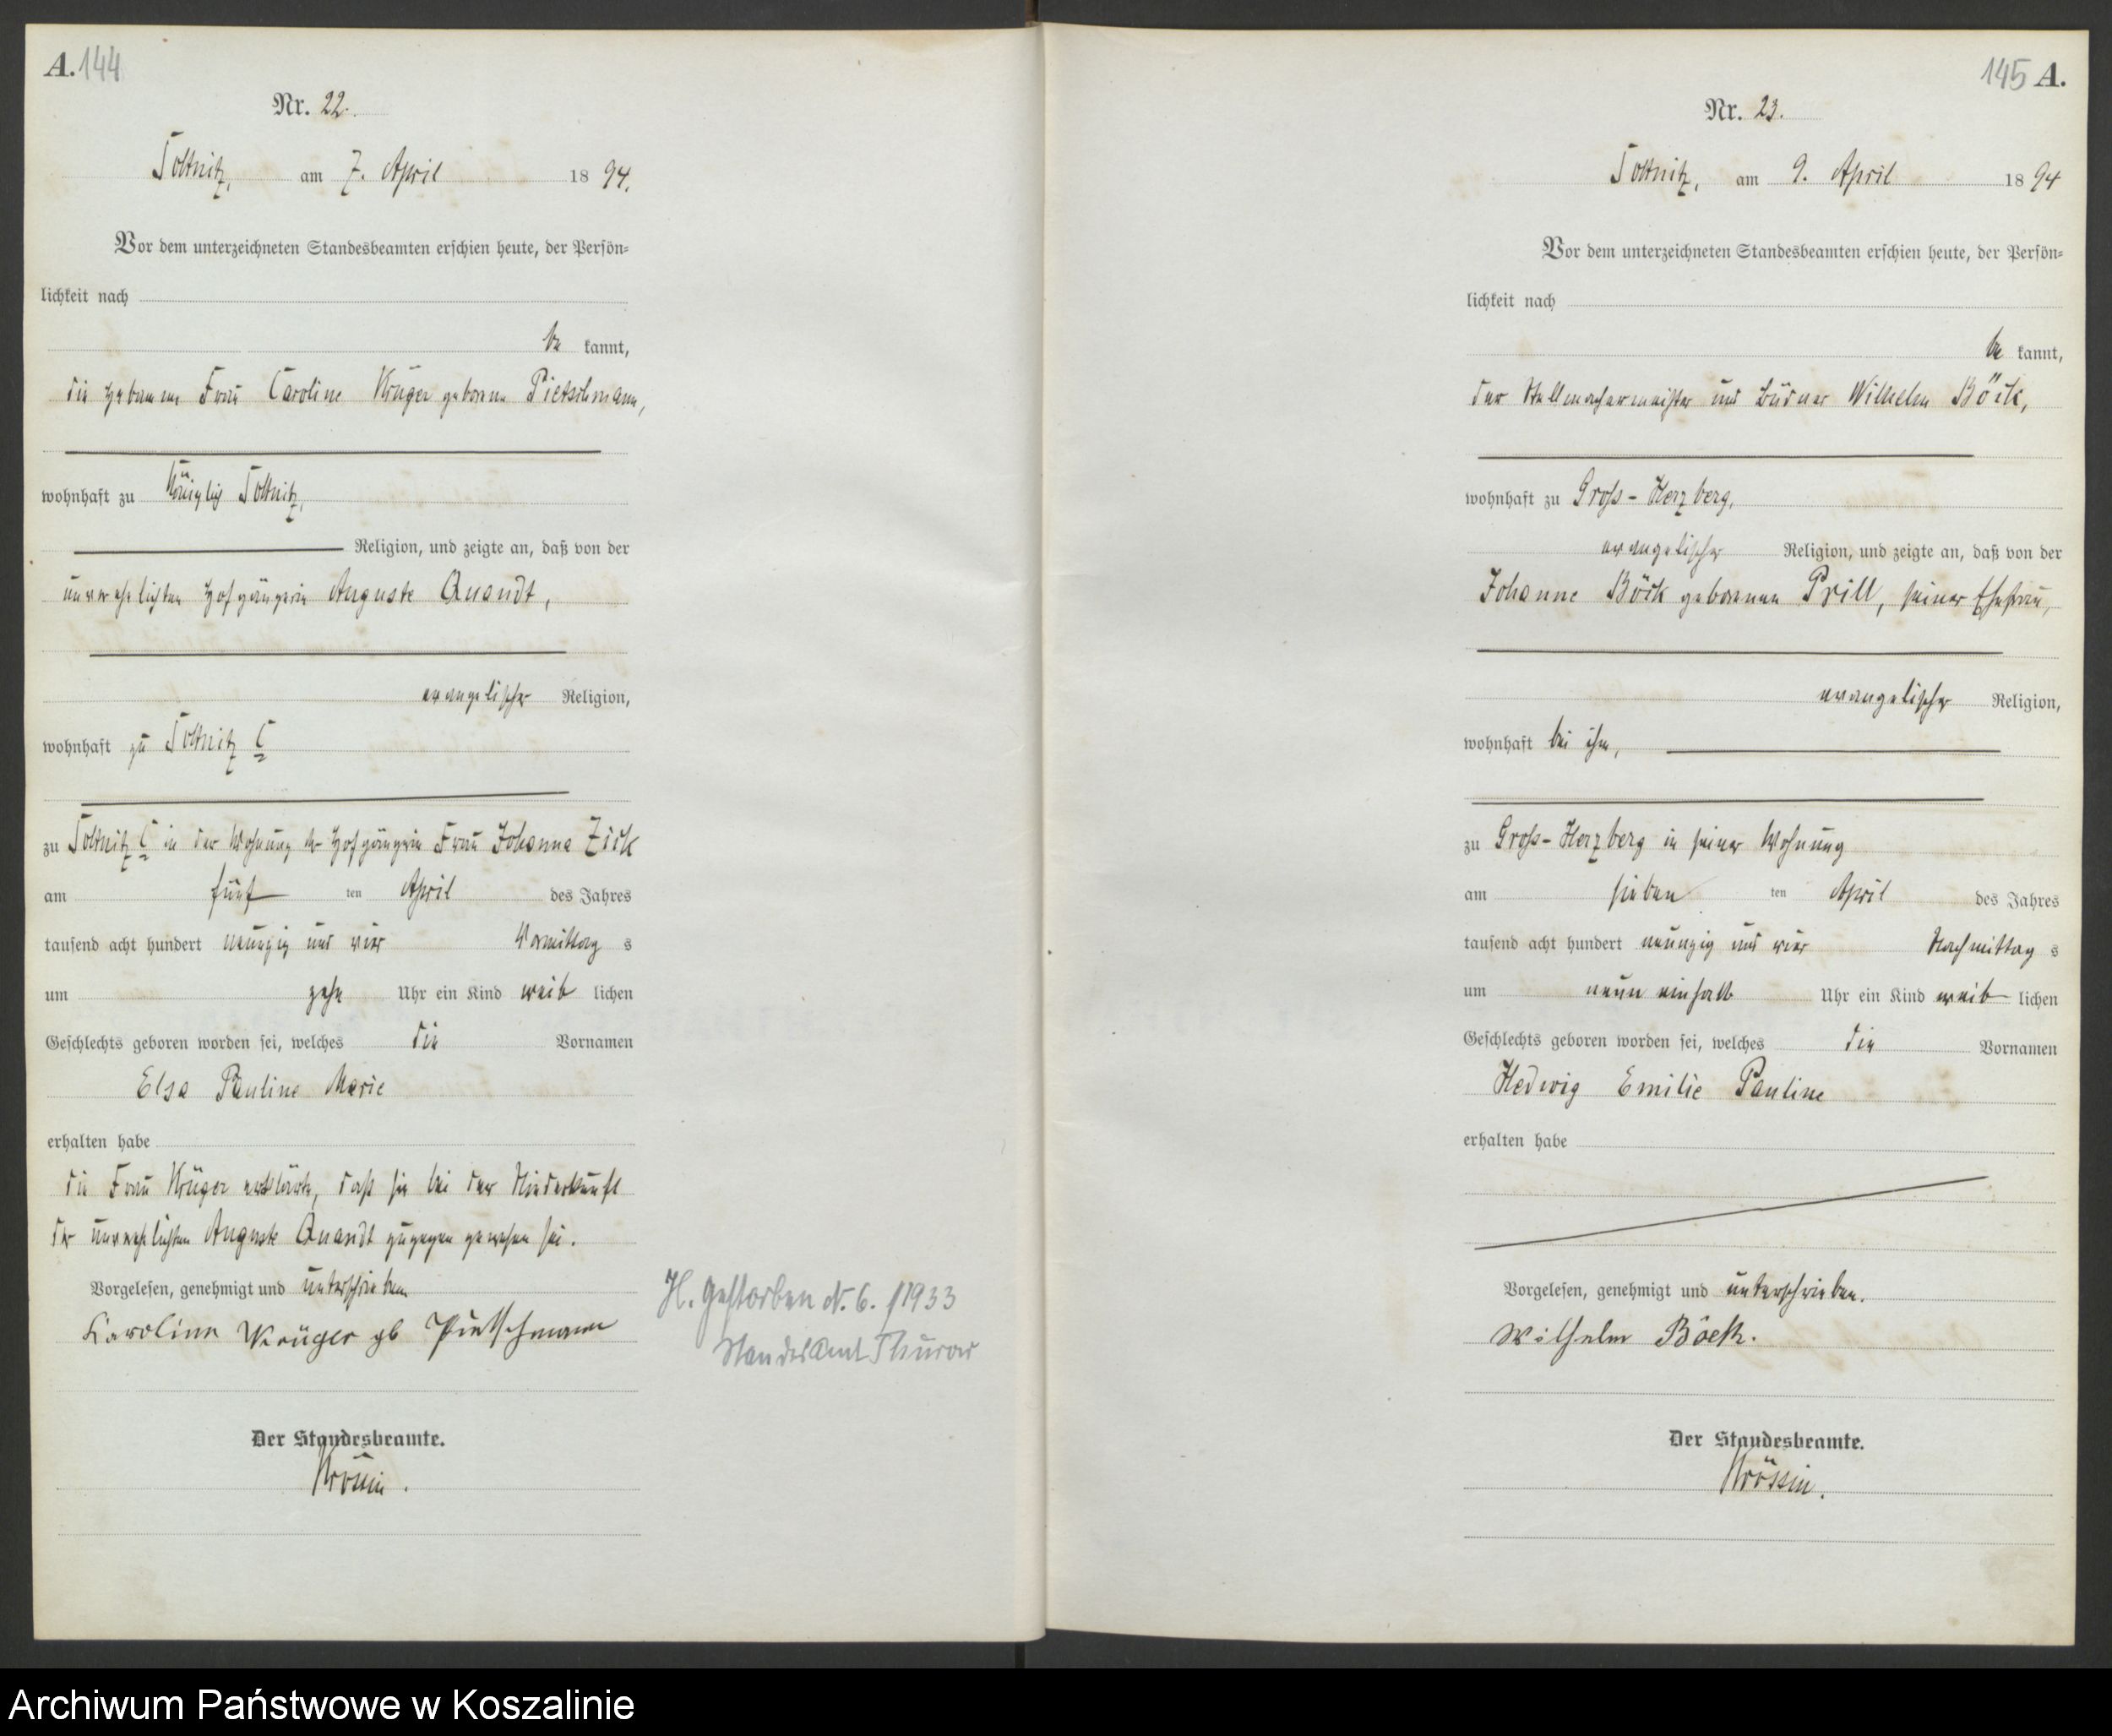 A. 144
Nr. 22.
Soltnitz, am 7. April 1894.
Vor dem unterzeichneten Standesbeamten erschien heute, der Persön-
lichkeit nach
be kannt,
die Hebamme Frau Caroline Krüger geborene Pietschmann,
wohnhaft zu Königlich Soltnitz,
Religion, und zeigte an, daß von der
unverehelichten Hofgängerin Auguste Quandt,
evangelischer Religion,
wohnhaft zu Soltnitz C
zu Soltnitz C in der Wohnung der Hofgängerin Frau Johanna Zick
am fünf ten April des Jahres
tausend acht hundert neunzig und vier Vormittag s
um zehn Uhr ein Kind weib lichen
Geschlechts geboren worden sei, welches die Vornamen
Elsa Pauline Marie
erhalten habe
die Frau Krüger erklärte, daß sie bei der Niederkunft
der unverehelichten Auguste Quandt zugegen gewesen sei.
Vorgelesen, genehmigt und unterschrieben
Karoline Krüger gb Pietschmann
Der Standesbeamte.
Krössin.
H. Gestorben N. 6. /1933
Standesamt Thurow
145 A.
Nr. 23.
Soltnitz, am 9. April 1894
Vor dem unterzeichneten Standesbeamten erschien heute, der Persön-
lichkeit nach
be kannt,
der Stellmachermeister und Büdner Wilhelm Böck,
wohnhaft zu Groß-Herzberg,
evangelischer Religion, und zeigte an, daß von der
Johanne Böck geborenen Prill, seiner Ehefrau,
evangelischer Religion,
wohnhaft bei ihm,
zu Groß-Herzberg in seiner Wohnung
am sieben ten April des Jahres
tausend acht hundert neunzig und vier Nachmittag s
um neun einhalb Uhr ein Kind weib lichen
Geschlechts geboren worden sei, welches die Vornamen
Hedwig Emilie Pauline
erhalten habe
Vorgelesen, genehmigt und unterschrieben.
Wilhelm Böck.
Der Standesbeamte.
Krössin.
Archiwum Państwowe w Koszalinie